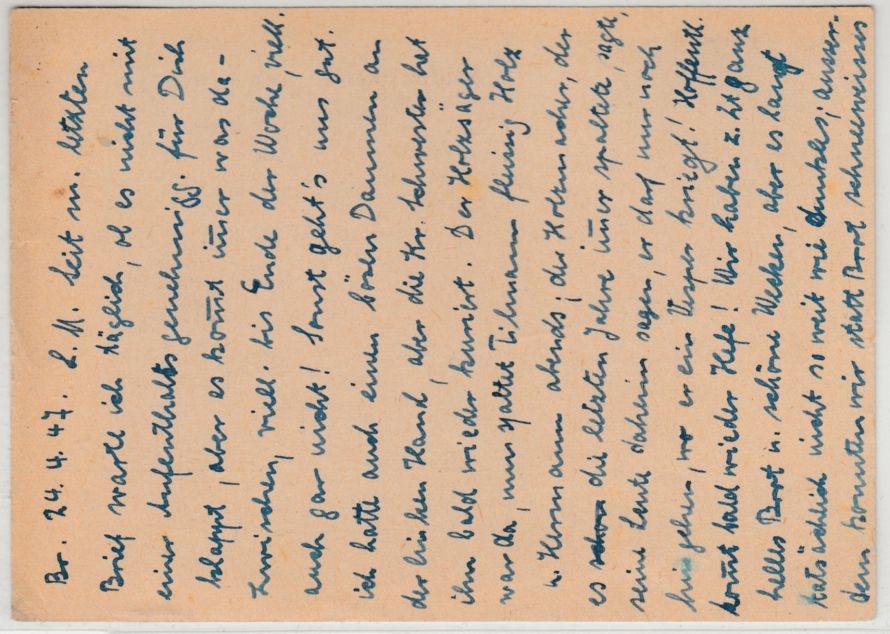 Br. 24. 4. 47. L. M. Seit m. letzten
Brief warte ich täglich, ob es nicht mit
einer Aufenthaltsgenehmigg. für Dich
klappt, aber es kom̄t im̄er was da-
zwischen, viell. bis Ende der Woche, viell.
auch gar nicht! Sonst geht's uns gut.
ich hatte auch einen bösen Daumen an
der linken Hand, aber die Kr. Schwester hat
ihn bald wieder kuriert. Der Holzsäger
war da, nun spaltet Tilmann fleissig Holz
u. Hermann abends; der Holzmacher, der
es schon die letzten Jahre im̄er spaltete, sagte,
seine Leute daheim sagen, er darf nur noch
hingehen, wo er ein Vesper kriegt! Hoffentl.
kom̄t bald wieder Hefe! Wir haben z. Zt ganz
helles Brot u. schöne Wecken, aber es langt
tatsächlich nicht so weit wie dunkles; ausser-
dem konnten wir statt Brot schneeweisses